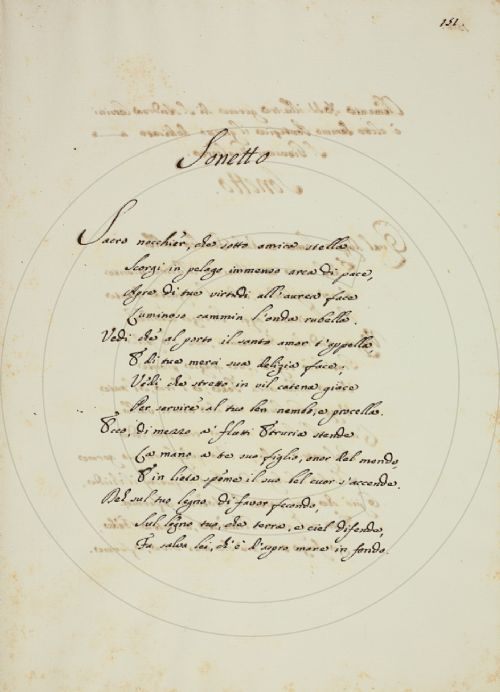 151.
Sonetto
Sacro nocchier, che sotto amica stella
Scorgi in pelago immenso arca di pace,
Apre di tue virtudi all'aurea face
Luminoso cammin l'onda rubella.
Vedi che al porto il santo amor t'appella,
E di tue merci sua delizia face,
Vedi che stretto in vil catena giace
Per servire al tuo ben nembo, e procella.
Ecco, di mezzo a' flutti Etruria stende
La mano a te suo figlio, onor del mondo,
E in lieta speme il suo bel cuor s'accende.
Deh sul tuo legno di favor fecondo,
Sul legno tuo, che terra, e ciel difende,
Tu salva lei, ch'è d'aspro mare in fondo.